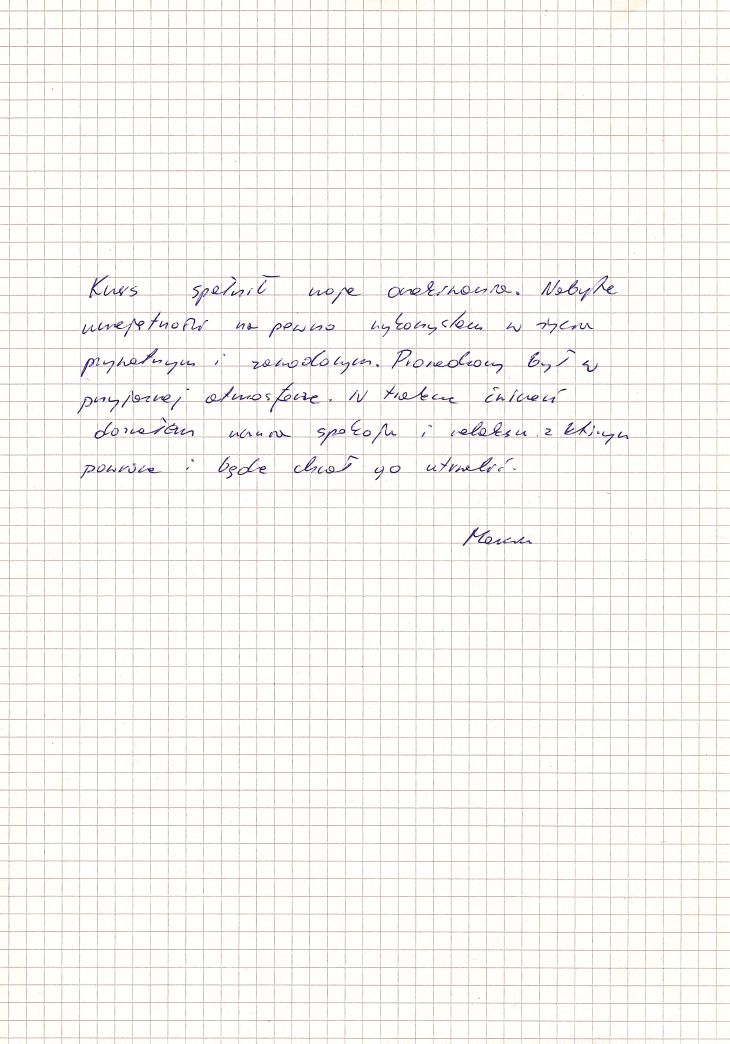 Kurs spełnił moje oczekiwania. Nabyte
umiejętności na pewno wykorzystam w życiu
prywatnym i zawodowym. Prowadzony był w
przyjaznej atmosferze. W trakcie ćwiczeń
doznałem uczucia spokoju i relaksu z którym
powrócę i będę chciał go utrwalić.
Marcin